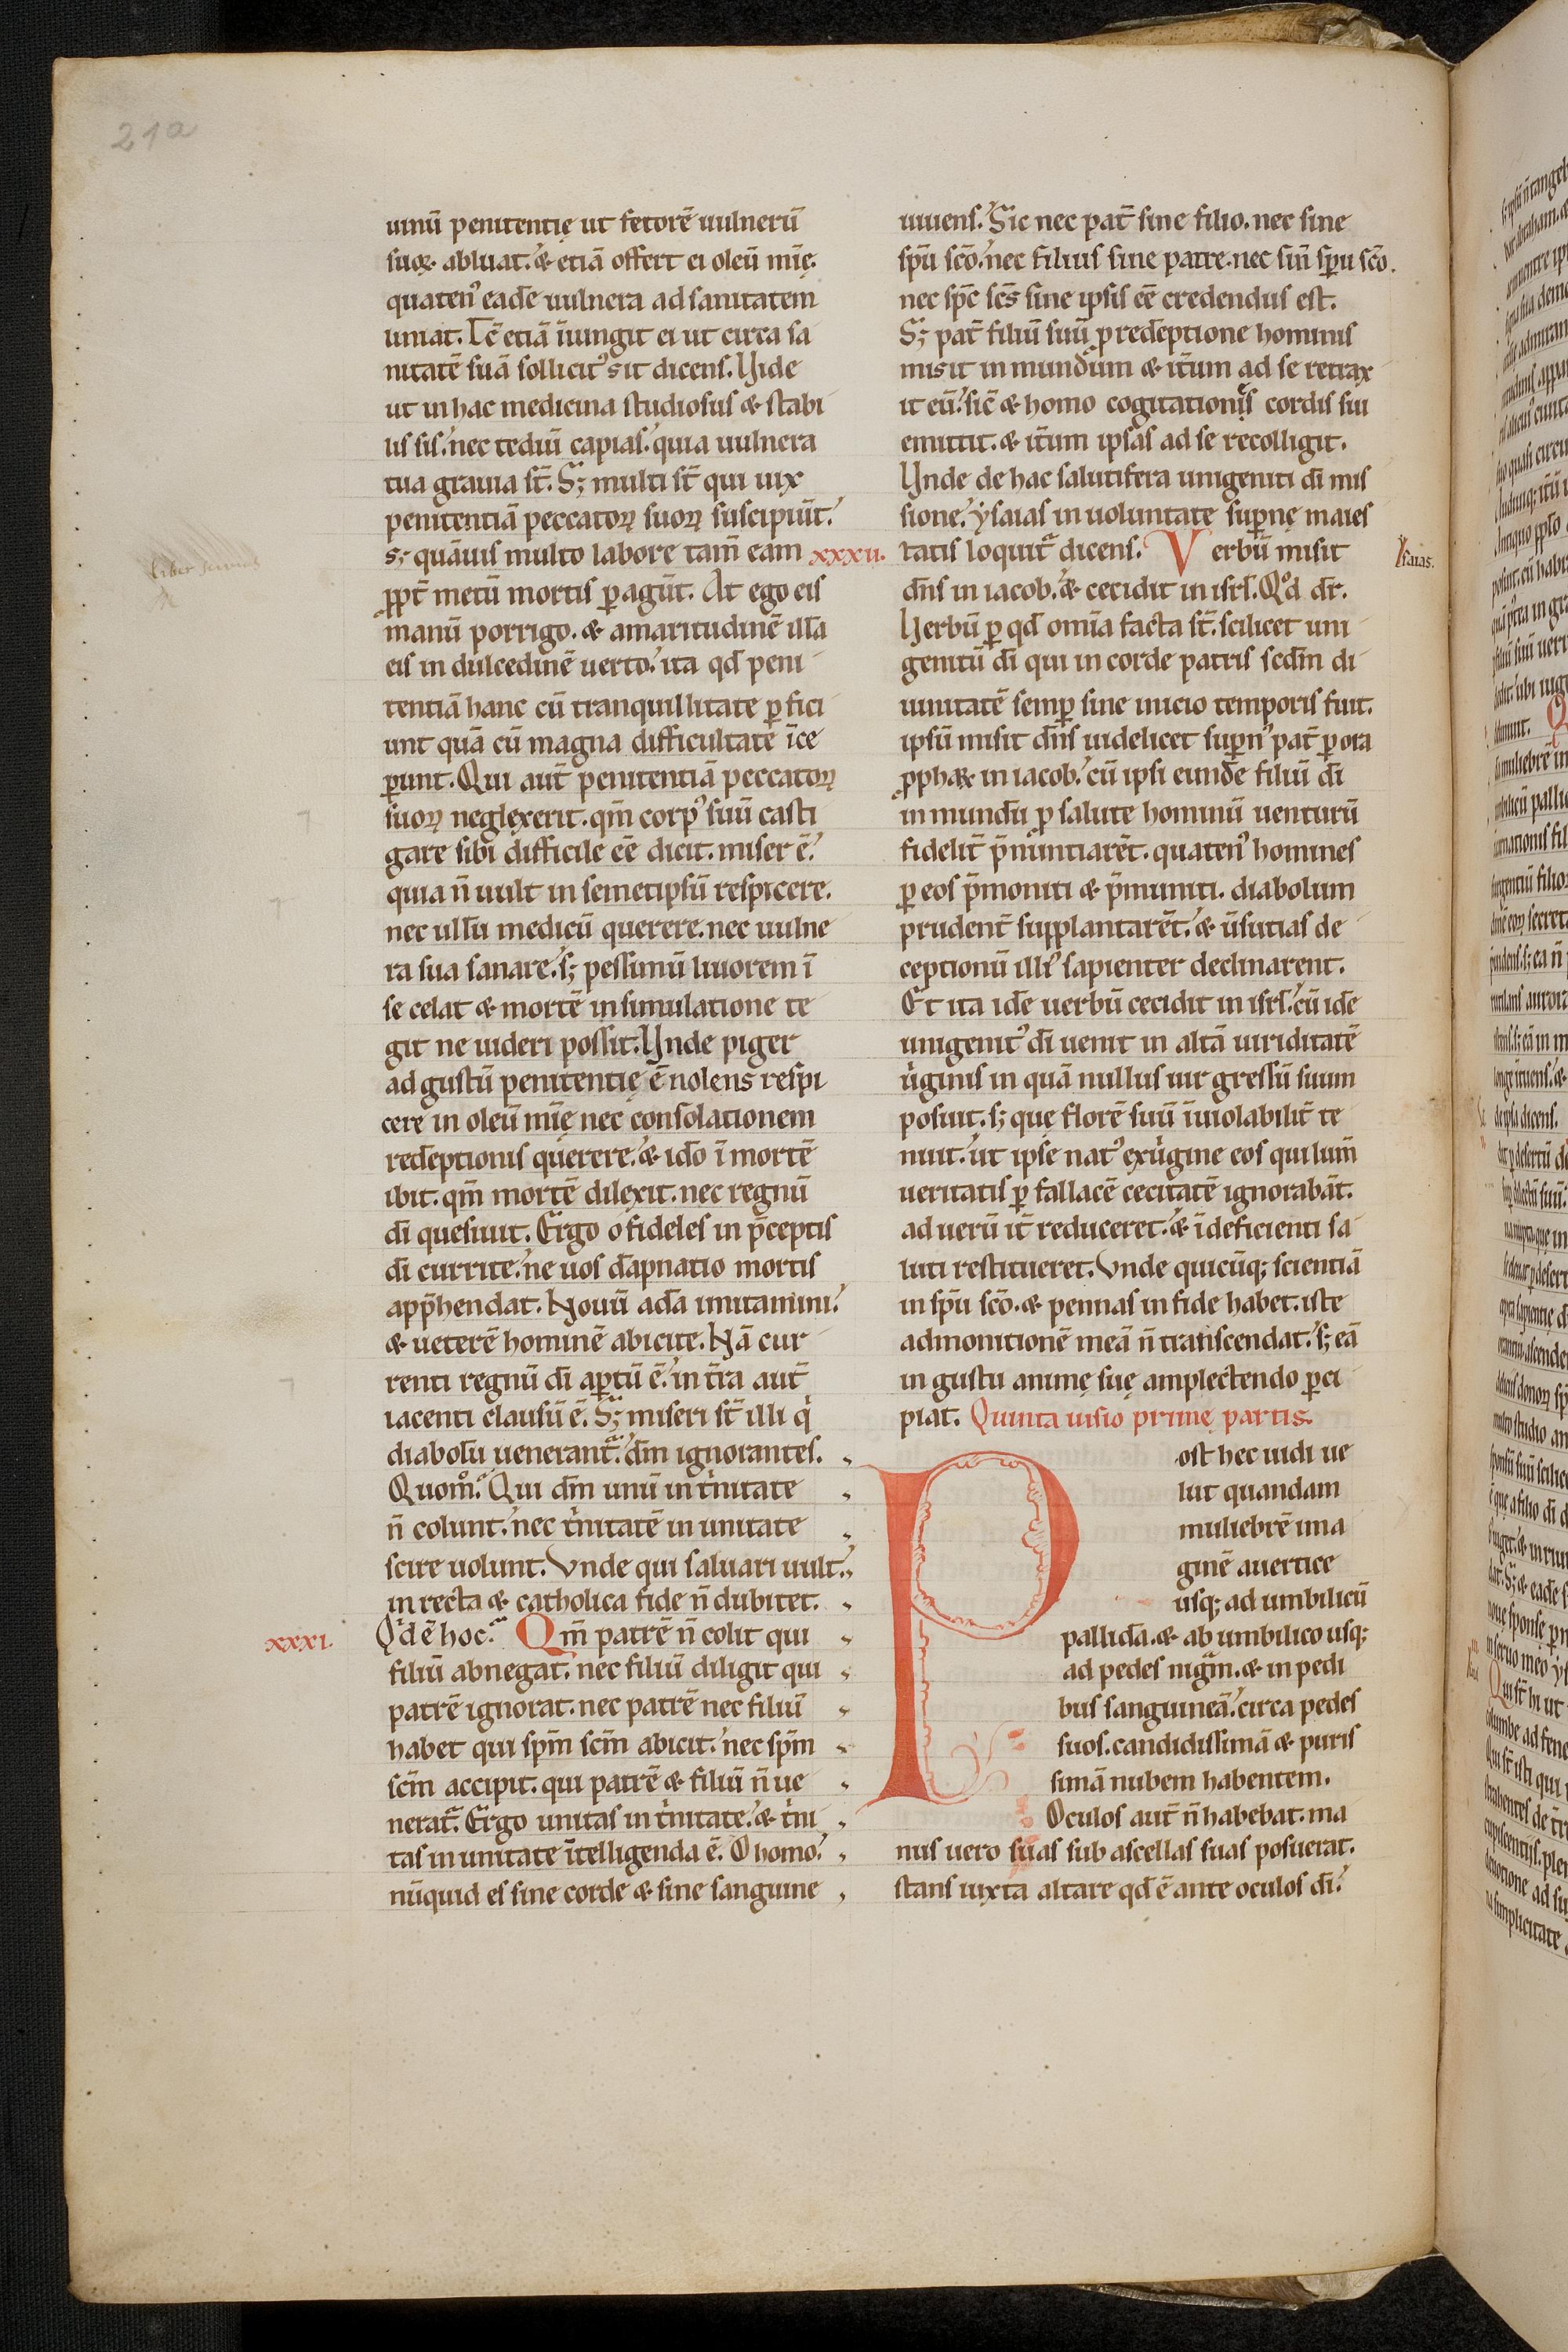 21a
uinū penitentię ut fetorē uulnerū
suoꝝ abluat. & etiā offert ei oleū mīę.
quatenꝰ eadē uulnera ad sanitatem
uniat. Cē etiā īiungit ei ut circa sa
nitatē suā sollicitꝰ sit dicens. Vide
ut in hac medicina studiosus & stabi
lis sis. nec tediū capias. quia uulnera
tua grauia st̄. S; multi st̄ qui uix
penitentiā peccatoꝝ suoꝝ suscipiūt.
s; quāuis multo labore tam̄ eam
ꝓpt̄ metū mortis ꝑagūt. At ego eis
manū porrigo. & amaritudinē illā
eis in dulcedinē uerto. ita qd̄ peni
tentiā hanc cū tranquillitate ꝑfici
unt quā cū magna difficultate īce
ꝑunt. Qui aut̄ penitentiā peccatoꝝ
suoꝝ neglexerit. qm̄ corpꝰ suū casti
gare sibi difficile eē dicit. miser ē.
quia n̄ uult in semetipsū respicere.
nec ullū medicū querere. nec uulne
ra sua sanare. s; pessimū liuorem ī
se celat & mortē in simulatione te
git ne uideri possit. Vnde piger
ad gustū penitentię ē nolens respi
cere in oleū mīę nec consolationem
redēptionis querere. & idō ī mortē
ibit. qm̄ mortē dilexit. nec regnū
dī quesiuit. Ergo o fideles in p̄ceptis
dī currite. ne uos dāpnatio mortis
app̄hendat. Nouū adā imitamini.
& ueterē hominē abicite. Nā cur
renti regnū dī aꝑtū ē. in t̄ra aut̄
iacenti clausū ē. S; miseri st̄ illi qͥ
diabolū uenerant᷑. dm̄ ignorantes.
Quom̊. Qui dm̄ unū in tͥnitate
n̄ colunt. nec tͥnitatē in unitate
scire uolunt. Vnde qui saluari uult.
in recta & catholica fide n̄ dubitet.
xxxi. Qͥd ē hoc. Qm̄ patrē n̄ colit qui
filiū abnegat. nec filiū diligit qui
patrē ignorat. nec patrē nec filiū
habet qui sp̄m sc̄m abicit. nec sp̄m
sc̄m accipit. qui patrē & filiū n̄ ue
nerat᷑. Ergo unitas in tͥnitate. & tͥni
tas in unitate ītelligenda ē. O homo.
nūquid es sine corde & sine sanguine
uiuens. Sic nec pat̄ sine filio. nec sine
sp̄u sc̄o. nec filius sine patre. nec sin̄ sp̄u sc̄o.
nec sp̄c sc̄s sine ipsis eē credendus est.
S; pat̄ filiū suū ꝓ redēptione hominis
misit in mundūm & it̄um ad se retrax
it eū. sic̄ & homo cogitationis cordis sui
emittit. & it̄um ipsas ad se recolligit.
Vnde de hac salutifera unigeniti dī mis
sione. ysaias in uoluntate suꝑnę maies
xxxii. tatis loquit᷑ dicens. Verbū misit
Ysaias.
dn̄s in iacob. & cecidit in isrl̄. Qd̊ dr̄.
Verbū ꝑ qd̄ omīa facta st̄. scilicet uni
genitū dī qui in corde patris scdm̄ di
uinitatē semꝑ sine inicio temporis fuit.
ipsū misit dn̄s uidelicet suꝑnꝰ pat̄ ꝑ ora
ꝓphaꝝ in iacob. cū ipsi eundē filiū dī
in mundū ꝓ salute hominū uenturū
fidelit̄ p̄nuntiarēt. quatenꝰ homines
ꝑ eos p̄moniti & p̄muniti. diabolum
prudent̄ supplantarēt. & ūsutias de
ceptionū illiꝰ sapienter declinarent.
Et ita idē uerbū cecidit in isrl̄. cū idē
unigenitꝰ dī uenit in altā uiriditatē
uͥginis in quā nullus uir gressū suum
posuit. s; quę florē suū īuiolabilit̄ te
nuit. ut ipse natꝰ ex uͥgine eos qui lum̄
ueritatis ꝑ fallacē cecitatē ignorabāt.
ad uerū it̄ reduceret. & īdeficienti sa
luti restitueret. Vnde quicūq; scientiā
in sp̄u sc̄o. & pennas in fide habet. iste
admonitionē meā n̄ transcendat. s; eā
in gustu animę suę amplectendo ꝑci
piat. Quinta uisio primę partis.
Post hec uidi ue
lut quandam
muliebrē ima
ginē a uertice
usq; ad umbilicū
pallidā. & ab umbilico usq;
ad pedes nigͣm. & in pedi
bus sanguineā. circa pedes
suos. candidissimā & puris
simā nubem habentem.
Oculos aut̄ n̄ habebat. ma
nus uero suas sub ascellas suas posuerat.
stans iuxta altare qd̄ ē ante oculos dī.